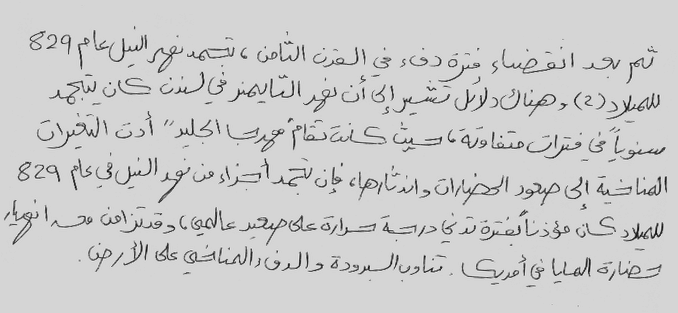 ثم بعد انقضاء فترة دفء في القرن الثامن، تجمد نهر النيل عام 829
للميلاد (2) وهناك دلائل تشير إلى أن نهر التايمز في لندن كان يتجمد
سنوياً في فترات متفاوتة، حيث كانت تقام "مهرجا الجليد" أدت التغيرات
المناخية إلى صعود الحضارات واندثارها، فإن تجمد أجزاء من نهر النيل في عام 829
للميلاد كان مؤذناً بفترة تدني درجة حرارة على صعيد عالمي، وقد تزامن معه انهيار
حضارة المايا في أمريكا. تناوب البرودة والدفء المناخي على الأرض.